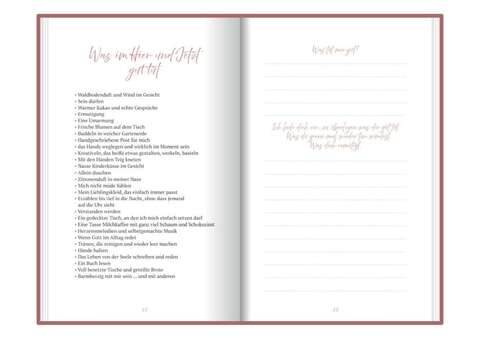 Was im Hier und Jetzt
gut tut
• Waldbodenduft und Wind im Gesicht
• Sein dürfen
• Warmer Kakao und echte Gespräche
• Ermutigung
• Eine Umarmung
• Frische Blumen auf dem Tisch
• Buddeln in weicher Gartenerde
• Handgeschriebene Post für mich
• das Handy weglegen und wirklich im Moment sein
• Kreativsein, das heißt etwas gestalten, werkeln, basteln
• Mit den Händen Teig kneten
• Nasse Kinderküsse im Gesicht
• Allein duschen
• Zitronenduft in meiner Nase
• Mich nicht müde fühlen
• Mein Lieblingskleid, das einfach immer passt
• Erzählen bis tief in die Nacht, ohne dass jemand
auf die Uhr sieht
• Verstanden werden
• Ein gedeckter Tisch, an den ich mich einfach setzen darf
• Eine Tasse Milchkaffee mit ganz viel Schaum und Schokozimt
• Herzensmelodien und selbstgemachte Musik
• Wenn Gott im Alltag redet
• Tränen, die reinigen und wieder leer machen
• Hände halten
• Das Leben von der Seele schreiben und reden
• Ein Buch lesen
• Voll besetzte Tische und geteilte Brote
• Barmherzig mit mir sein ... und mit anderen
Was tut mir gut?
Ich lade dich ein, zu überlegen was dir gut tut.
Was du gerne mal wieder tun möchtest.